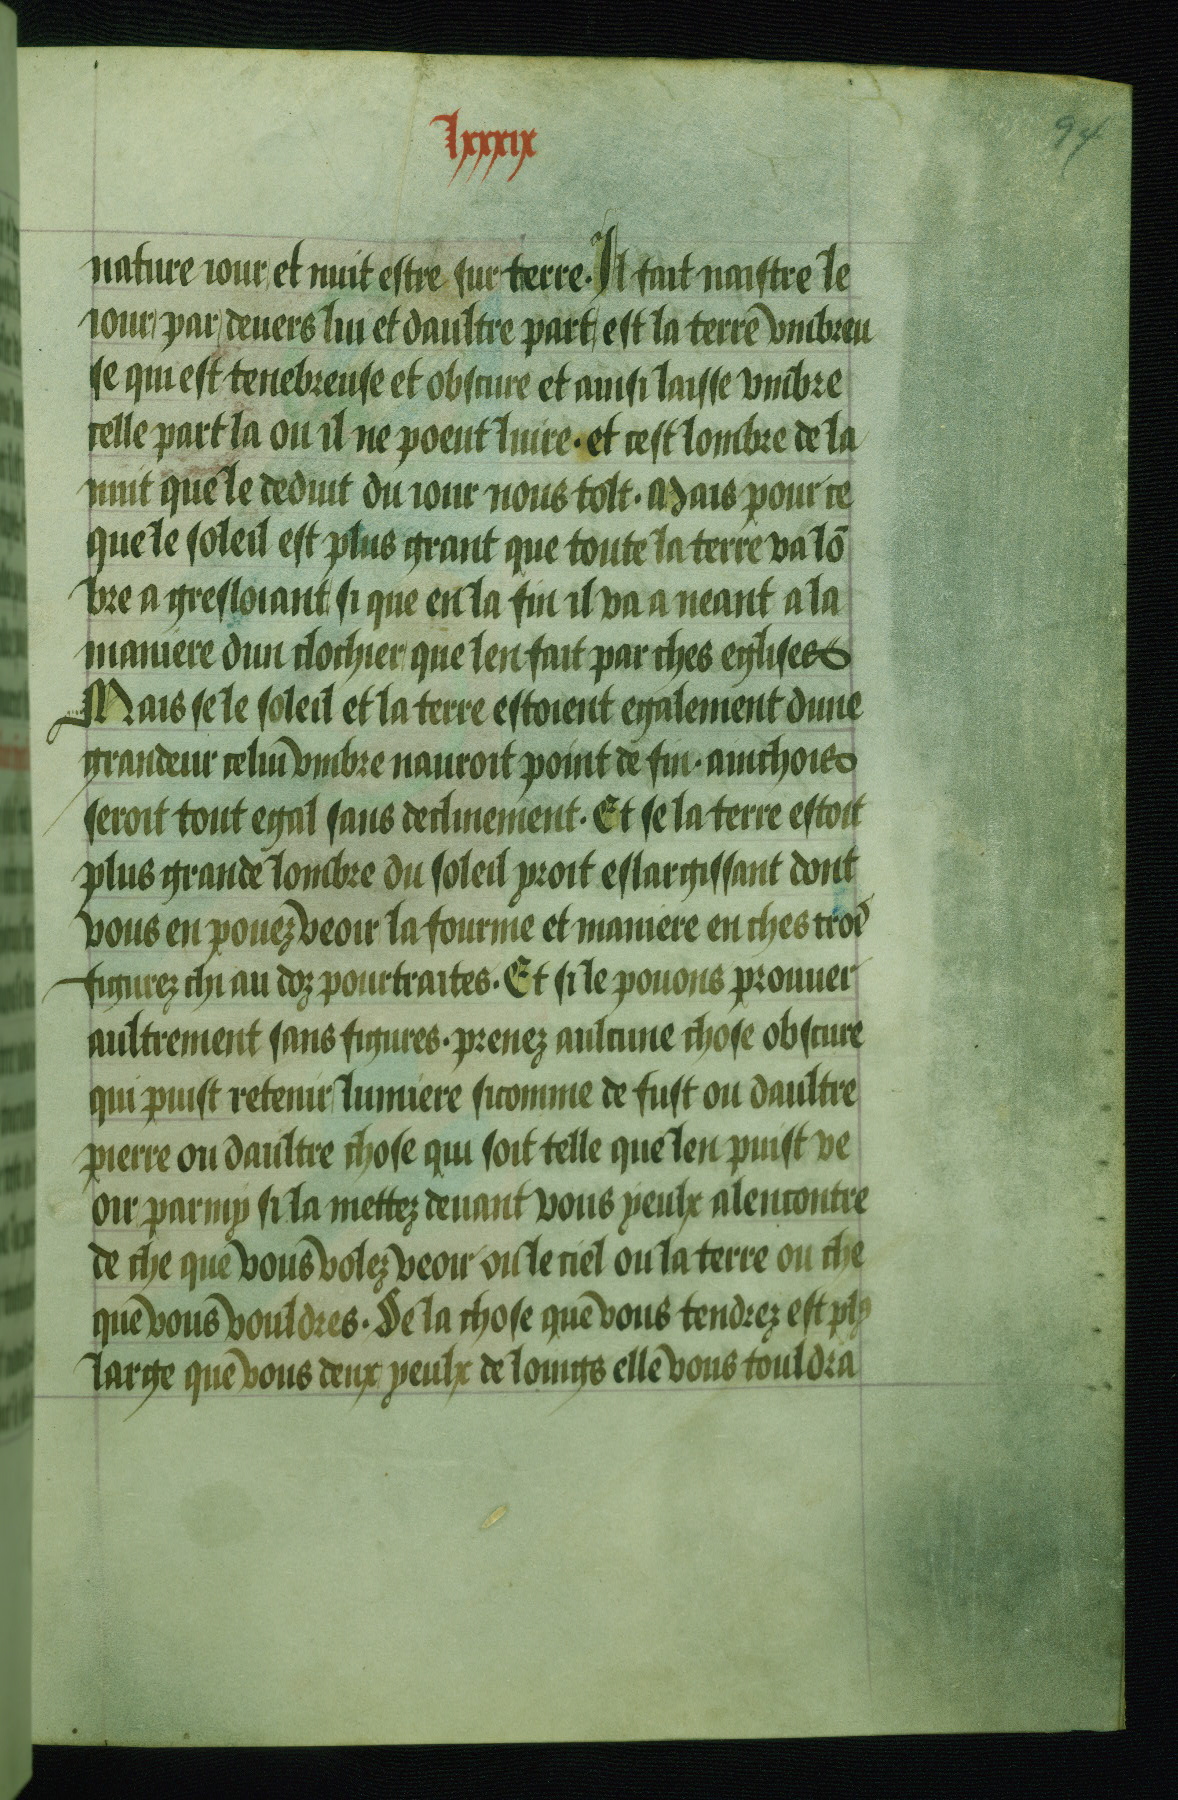 lxxxix
94
nature iour et nuit estre sur terre. Il fait naistre le
iour par deuers lui et daultre part est la terre vmbreu
se qui est tenebreuse et obscure et ainsi laisse vmbre
celle part la ou il ne poeut luire. et cest lombre de la
nuit que le deduit du iour nous tolt. Mais pour ce
que le soleil est plus grant que toute la terre va lō
bre a gresloiant si que en la fin il va a neant a la
maniere dun clochier que len fait par ches eglises
Mais se le soleil et la terre estoient egalement dune
grandeur celui vmbre nauroit point de fin. ainchois
seroit tout egal sans declinement. Et se la terre estoit
plus grande lombre du soleil yroit eslargissant dont
vous en pouez veoir la fourme et maniere en ches trois
figurez chi au doz pourtraites. Et si le pouons prouuer
aultrement sans figures. prenez aulcune chose obscure
qui puist retenir lumiere sicomme de fust ou daultre
pierre ou daultre chose qui soit telle que len puist ve
oir parmy si la mettez deuant vous yeulx alencontre
de che que vous volez veoir ou le ciel ou la terre ou che
que vous vouldres. Se la chose que vous tendrez est plꝰ
large que vous deux yeulx de loings elle vous touldra